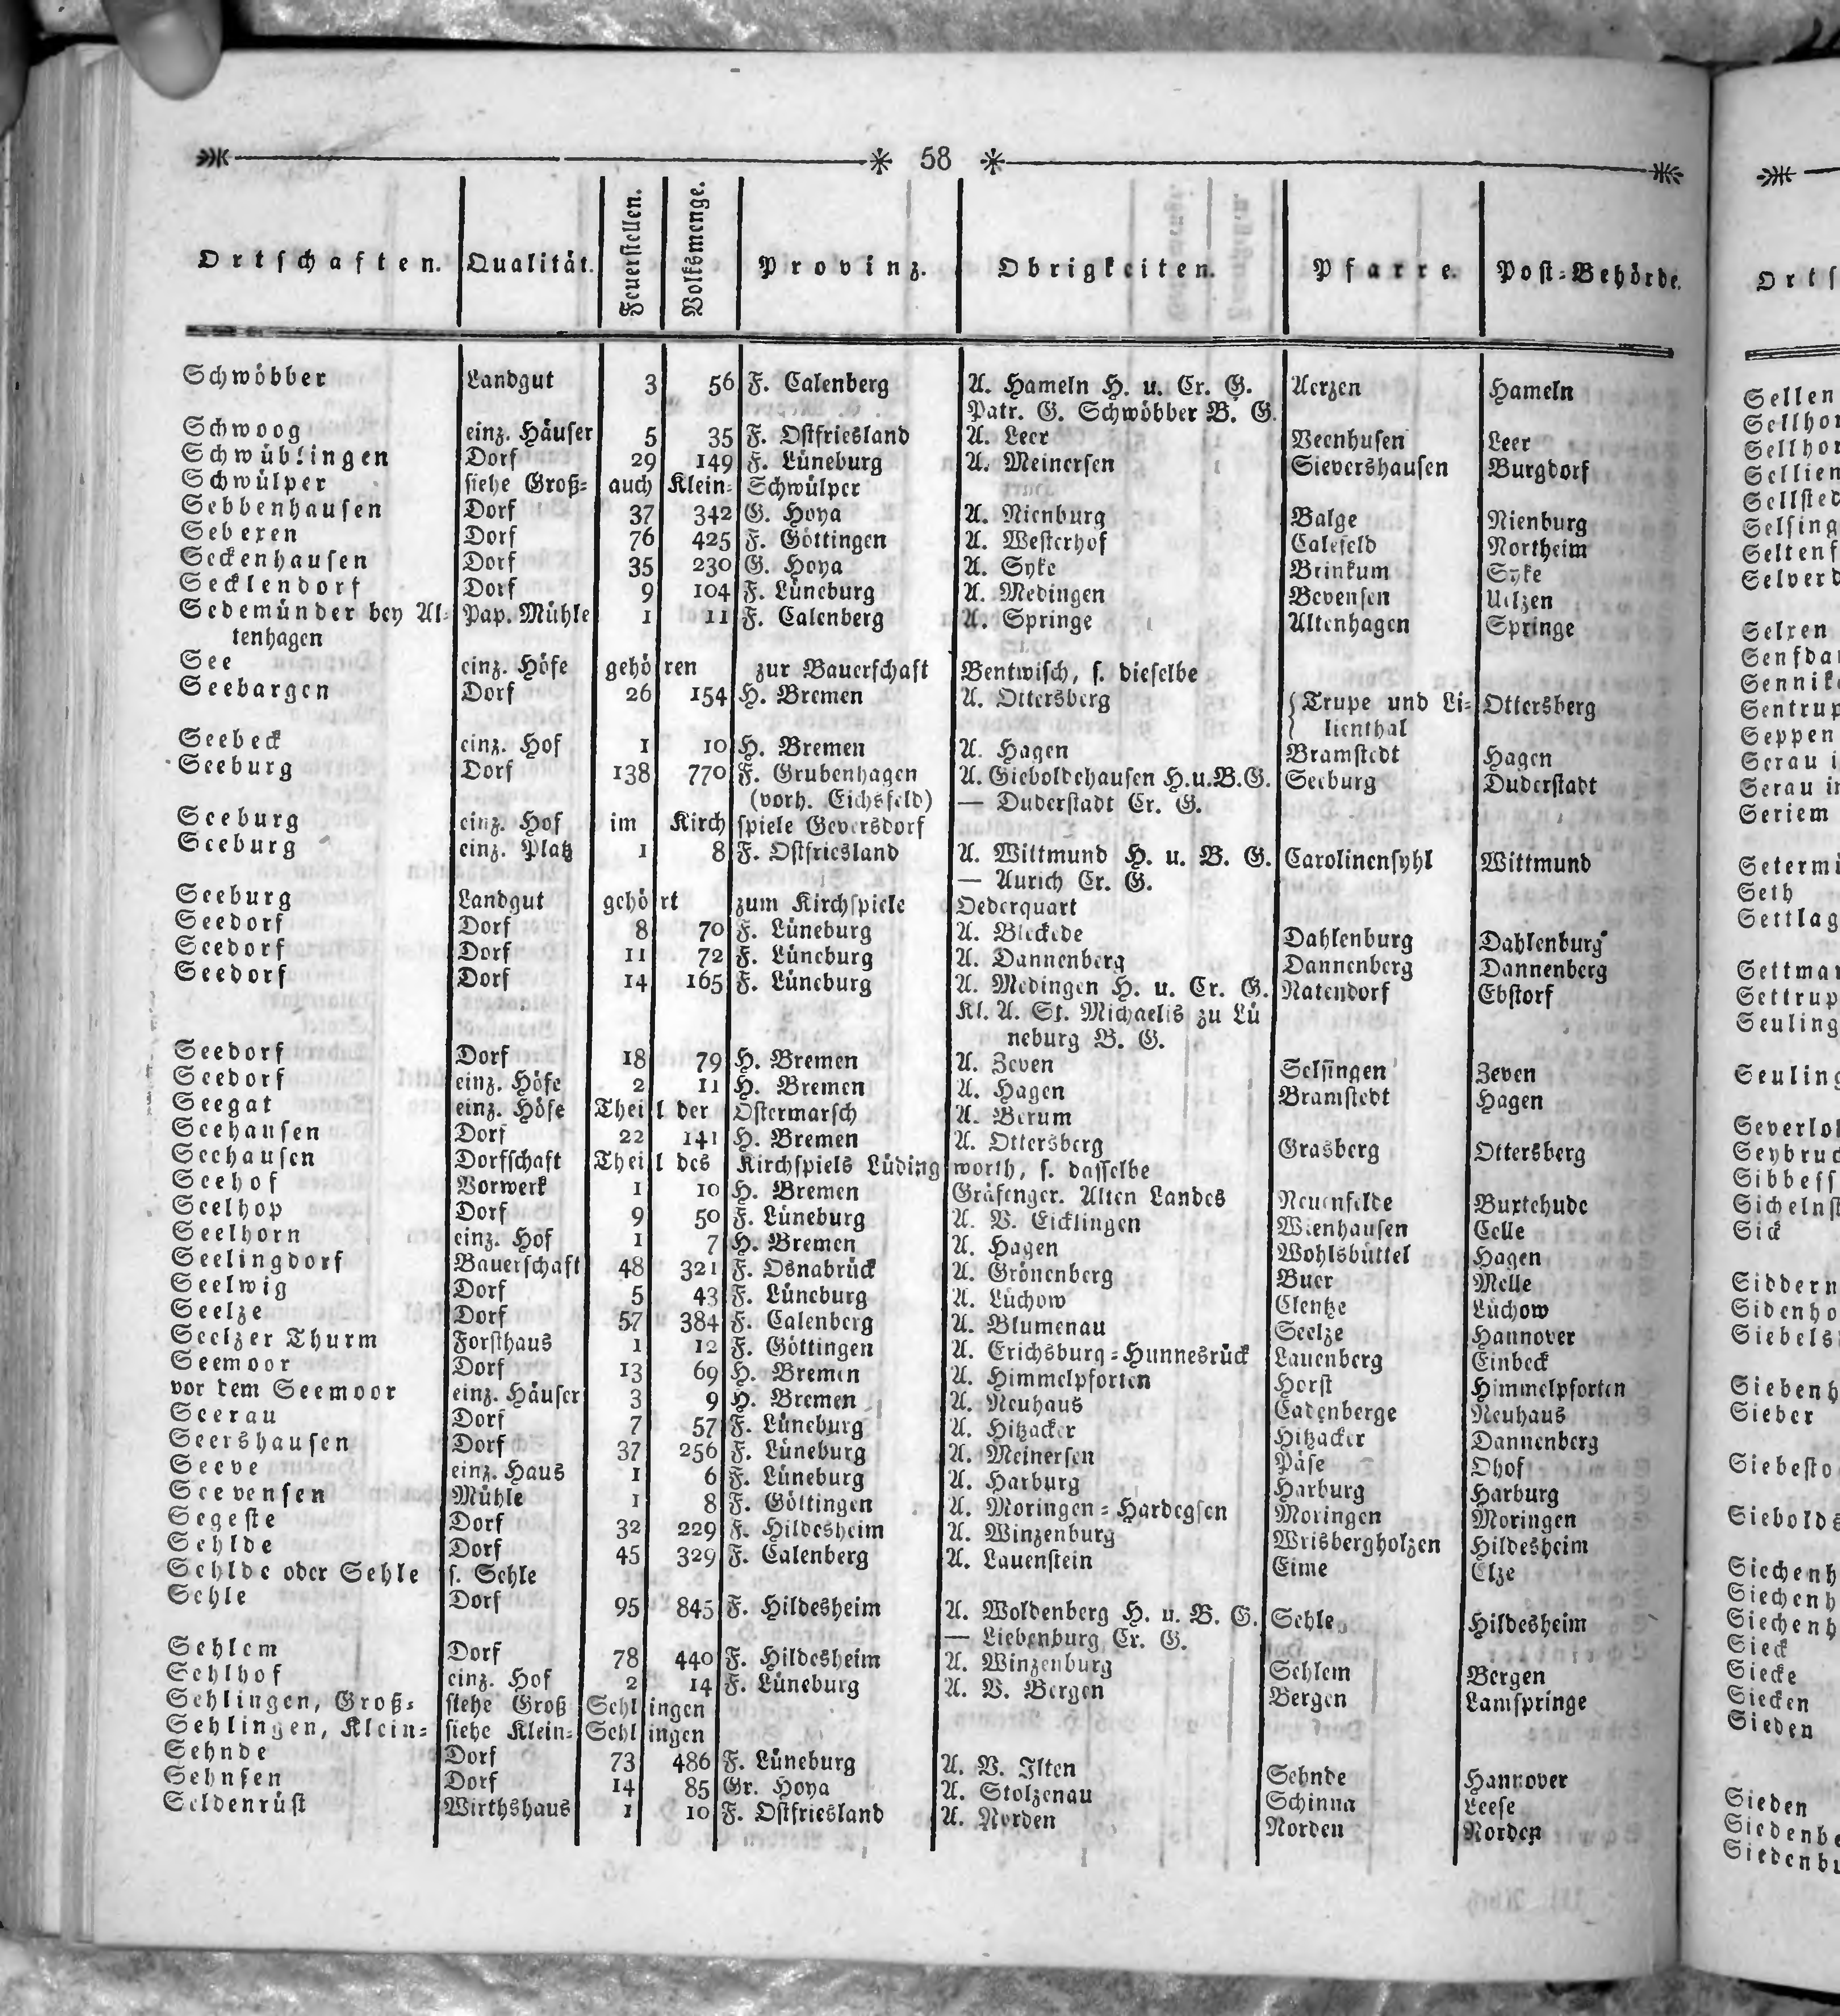 58
Ortschaften. Qualität. Feuerstellen. Volksmenge. Provinz. Obrigkeiten. Pfarre. Post-Behörde.
Schwöbber Landgut 3 56 F. Calenberg A. Hameln H. u. Cr. G. Aerzen Hameln
Patr. G. Schwöbber B. G.
Schwoog einz. Häuser 5 35 F. Ostfriesland A. Leer Veenhusen Leer
Schwüblingen Dorf 29 149 F. Lüneburg A. Meinersen Sievershausen Burgdorf
Schwülper siehe Groß- auch Klein-Schwülper
Sebbenhausen Dorf 37 342 G. Hoya A. Nienburg Balge Nienburg
Seberen Dorf 76 425 F. Göttingen A. Westerhof Calefeld Northeim
Seckenhausen Dorf 35 230 G. Hoya A. Syke Brinkum Syke
Secklendorf Dorf 9 104 F. Lüneburg A. Medingen Bevensen Uelzen
Sedemünder bey Al- Pap. Mühle 1 11 F. Calenberg A. Springe Altenhagen Springe
tenhagen
See einz. Höfe gehören zur Bauerschaft Bentwisch, s. dieselbe
Seebargen Dorf 26 154 H. Bremen A. Ottersberg Trupe und Li- Ottersberg
lienthal
Seebeck einz. Hof 1 10 H. Bremen A. Hagen Bramstedt Hagen
Seeburg Dorf 138 770 F. Grubenhagen A. Gieboldehausen H.u.B.G. Seeburg Duderstadt
(vorh. Eichsfeld) — Duderstadt Cr. G.
Seeburg einz. Hof im Kirchspiele Geversdorf
Seeburg einz. Platz 1 8 F. Ostfriesland A. Wittmund H. u. B. G. Carolinensyhl Wittmund
— Aurich Cr. G.
Seeburg Landgut gehört zum Kirchspiele Oederquart
Seedorf Dorf 8 70 F. Lüneburg A. Bleckede Dahlenburg Dahlenburg
Seedorf Dorf 11 72 F. Lüneburg A. Dannenberg Dannenberg Dannenberg
Seedorf Dorf 14 165 F. Lüneburg A. Medingen H. u. Cr. G. Natendorf Ebstorf
Kl. A. St. Michaelis zu Lü
neburg B. G.
Seedorf Dorf 18 79 H. Bremen A. Zeven Selsingen Zeven
Seedorf einz. Höfe 2 11 H. Bremen A. Hagen Bramstedt Hagen
Seegat einz. Höfe Theil der Ostermarsch A. Berum
Seehausen Dorf 22 141 H. Bremen A. Ottersberg Grasberg Ottersberg
Seehausen Dorfschaft Theil des Kirchspiels Lüdingworth, s. dasselbe
Seehof Vorwerk 1 10 H. Bremen Gräfenger. Alten Landes Neuenfelde Buxtehude
Seelhop Dorf 9 50 F. Lüneburg A. V. Eicklingen Wienhausen Celle
Seelhorn einz. Hof 1 7 H. Bremen A. Hagen Wohlsbüttel Hagen
Seelingdorf Bauerschaft 48 321 F. Osnabrück A. Grönenberg Buer Melle
Seelwig Dorf 5 43 F. Lüneburg A. Lüchow Clentze Lüchow
Seelze Dorf 57 384 F. Calenberg A. Blumenau Seelze Hannover
Seelzer Thurm Forsthaus 1 12 F. Göttingen A. Erichsburg-Hunnesrück Lauenberg Einbeck
Seemoor Dorf 13 69 H. Bremen A. Himmelpforten Horst Himmelpforten
vor dem Seemoor einz. Häuser 3 9 H. Bremen A. Neuhaus Cadenberge Neuhaus
Seerau Dorf 7 57 F. Lüneburg A. Hitzacker Hitzacker Dannenberg
Seershausen Dorf 37 256 F. Lüneburg A. Meinersen Päse Ohof
Seeve einz. Haus 1 6 F. Lüneburg A. Harburg Harburg Harburg
Seevensen Mühle 1 8 F. Göttingen A. Moringen-Hardegsen Moringen Moringen
Segeste Dorf 32 229 F. Hildesheim A. Winzenburg Wrisbergholzen Hildesheim
Sehlde Dorf 45 329 F. Calenberg A. Lauenstein Eime Elze
Sehlde oder Sehle s. Sehle
Sehle Dorf 95 845 F. Hildesheim A. Woldenberg H. u. B. G. Sehle Hildesheim
— Liebenburg Cr. G.
Sehlem Dorf 78 440 F. Hildesheim A. Winzenburg Sehlem Bergen
Sehlhof einz. Hof 2 14 F. Lüneburg A. V. Bergen Bergen Lamspringe
Sehlingen, Groß- siehe Groß Sehlingen
Sehlingen, Klein- siehe Klein-Sehlingen
Sehnde Dorf 73 486 F. Lüneburg A. V. Ilten Sehnde Hannover
Sehnsen Dorf 14 85 Gr. Hoya A. Stolzenau Schinna Leese
Seldenrüst Wirthshaus 1 10 F. Ostfriesland A. Norden Norden Norden
Orts
Sellen
Sellhor
Sellhor
Sellien
Sellsted
Selsing
Seltens
Selverd
Selxen
Senfda
Sennik
Sentrup
Seppen
Serau i
Serau in
Seriem
Seterm
Seth
Settlag
Settmar
Settrup
Seuling
Seuling
Severloh
Seybruc
Sibbess
Sichelnst
Sick
Siddern
Sidenho
Siebels
Siebenh
Sieber
Siebesto
Siebolds
Siechenh
Siechenh
Siechenh
Sieck
Siecke
Siecken
Sieden
Sieden
Siedenbe
Siedenbu